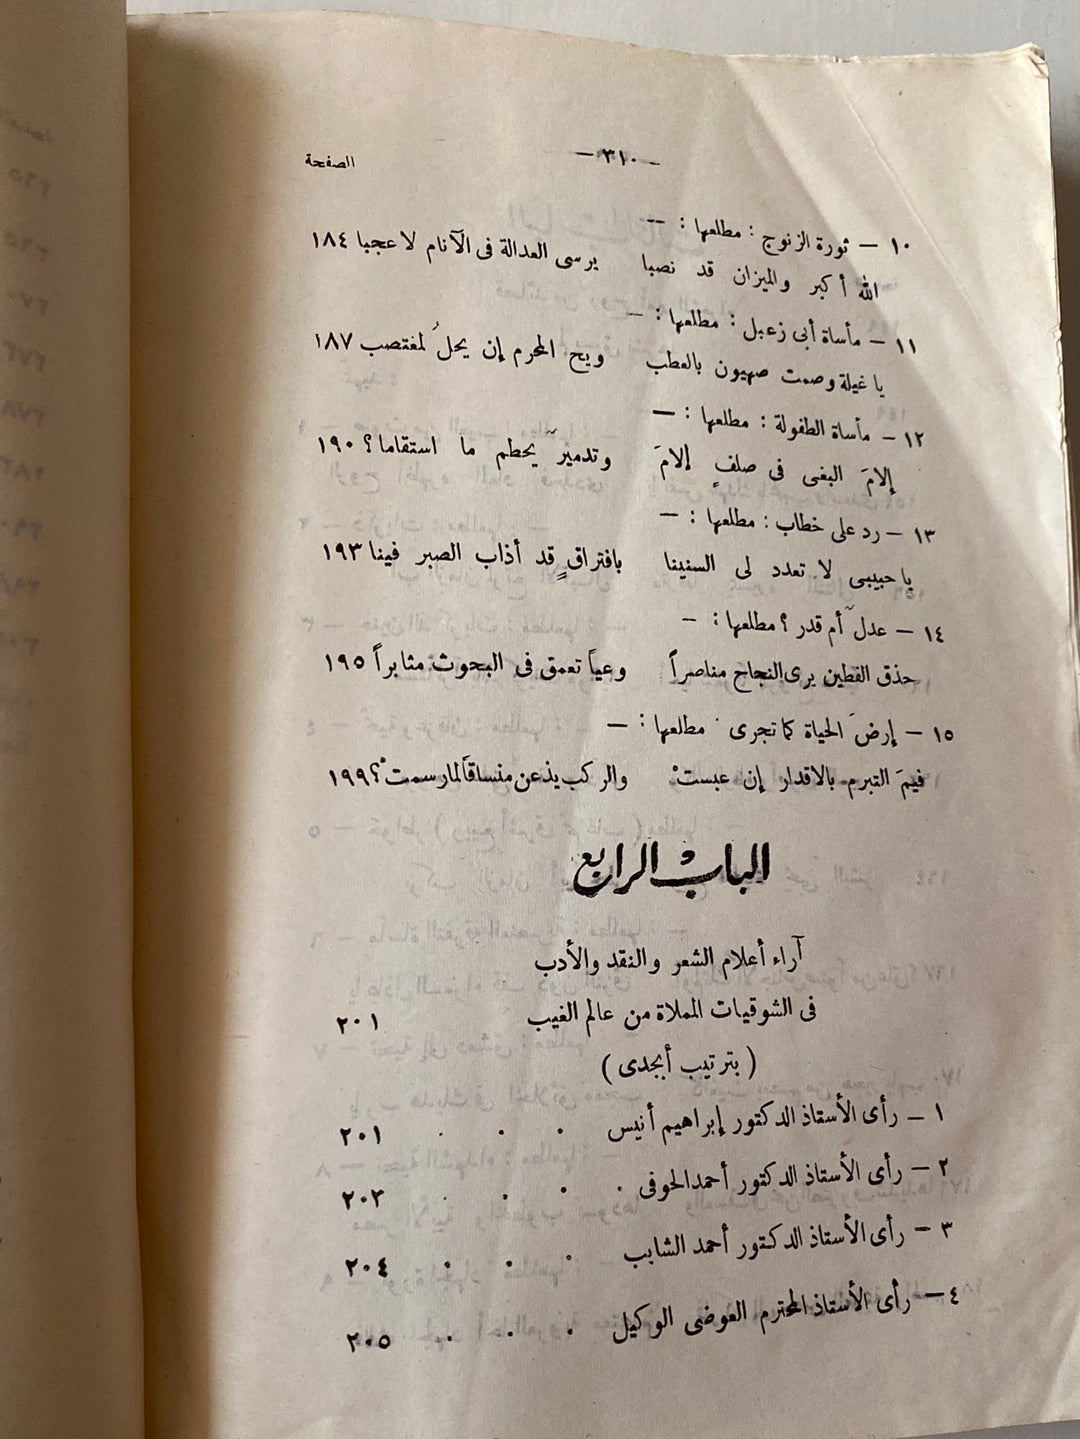 — ٣١٠ —
الصفحة
١٠ — ثورة الزنوج : مطلعها : —
الله أكبر والميزان قد نصبا يرسى العدالة فى الآنام لا عجبا ١٨٤
١١ — مأساة أبى زعبل : مطلعها : —
يا غيلة وصمت صهيون بالعطب ويح المحرم إن يحلُ لمغتصب ١٨٧
١٢ — مأساة الطفولة : مطلعها : —
إلامَ البغى فى صلفٍ إلامَ وتدميرٌ يحطم ما استقاما ؟ ١٩٠
١٣ — رد على خطاب : مطلعها : —
يا حبيبى لا تعدد لى السنينا بافتراقٍ قد أذاب الصبر فينا ١٩٣
١٤ — عدلٌ أم قدر ؟ مطلعها : —
حذق الفطين يرى النجاح مناصراً وعياً تعمق فى البحوث مثابراً ١٩٥
١٥ — إرضَ الحياة كما تجرى . مطلعها : —
فيمَ التبرم بالاقدار إن عبستْ والركب يذعن منساقاً لما رسمتْ ؟ ١٩٩
الباب الرابع
آراء أعلام الشعر والنقد والأدب
فى الشوقيات المملاة من عالم الغيب ٢٠١
( بترتيب أبجدى )
١ — رأى الأستاذ الدكتور إبراهيم أنيس . . . ٢٠١
٢ — رأى الأستاذ الدكتور أحمد الحوفى . . . . ٢٠٢
٣ — رأى الأستاذ الدكتور أحمد الشايب . . . ٢٠٤
٤ — رأى الأستاذ المحترم العوضى الوكيل . . . ٢٠٥